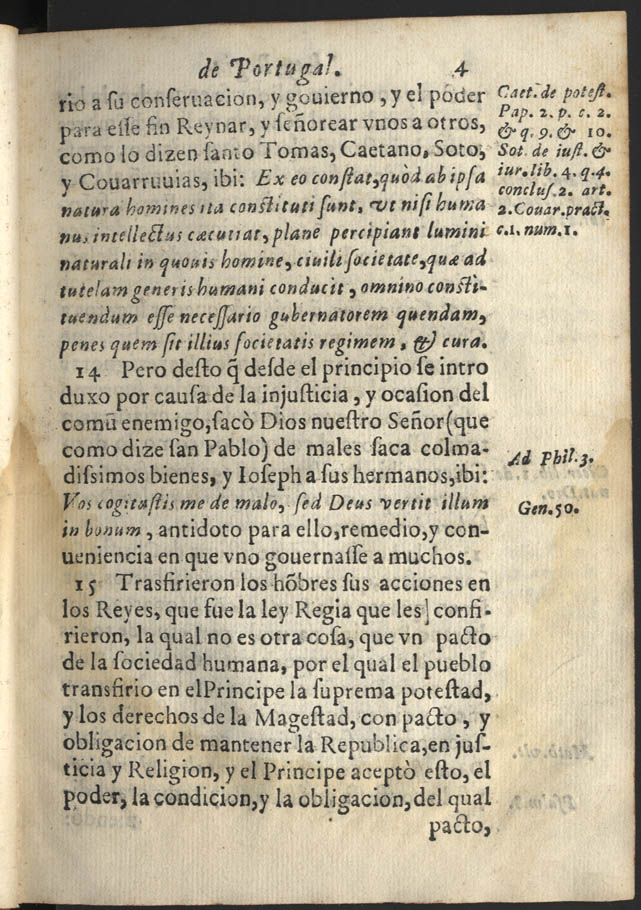 de Portugal. 4
rio a su conseruacion, y gouierno, y el poder
para esse fin Reynar, y señorear vnos a otros,
como lo dizen santo Tomas, Caetano, Soto,
y Couarruuias, ibi: Ex eo constat, quòd ab ipsa
natura homines ita constituti sunt, vt nisi huma
nus intellectus cæcutiat, plane percipiant lumini
naturali in quouis homine, ciuili societate, quæ ad
tutelam generis humani conducit, omnino consti-
tuendum esse necessario gubernatorem quendam,
penes quem sit illius societatis regimem, & cura.
14 Pero desto q̃ desde el principio se intro
duxo por causa de la injusticia, y ocasion del
comũ enemigo, sacò Dios nuestro Señor (que
como dize san Pablo) de males saca colma-
dissimos bienes, y Ioseph a sus hermanos, ibi:
Vos cogitastis me de malo, sed Deus vertit illum
in bonum, antidoto para ello, remedio, y con-
ueniencia en que vno gouernasse a muchos.
15 Trasfirieron los hõbres sus acciones en
los Reyes, que fue la ley Regia que les] confi-
rieron, la qual no es otra cosa, que vn pacto
de la sociedad humana, por el qual el pueblo
transfirio en el Principe la suprema potestad,
y los derechos de la Magestad, con pacto, y
obligacion de mantener la Republica, en jus-
ticia y Religion, y el Principe aceptò esto, el
poder, la condicion, y la obligacion, del qual
pacto,
Caet. de potest.
Pap. 2. p. c. 2.
& q. 9. & 10.
Sot. de iust. &
iur. lib. 4. q. 4.
conclus. 2. art.
2. Couar. pract.
c. 1. num. 1.
Ad Phil. 3.
Gen. 50.